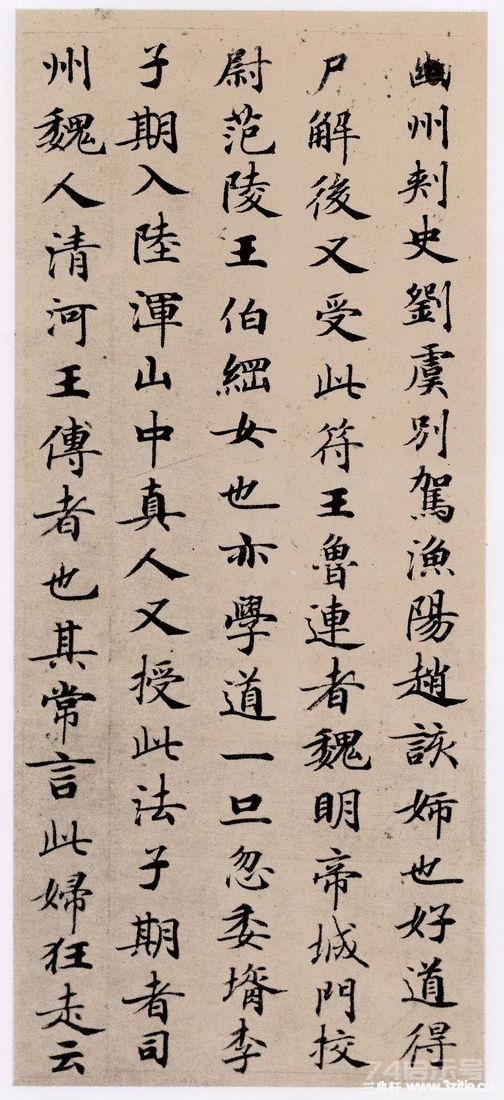 幽州刾史劉虞別駕漁陽趙該姉也好道得
尸解後又受此符王魯連者魏明帝城門挍
尉范陵王伯綱女也亦學道一旦忽委壻李
子期入陸渾山中真人又授此法子期者司
州魏人清河王傅者也其常言此婦狂走云
www.3zitie.cn